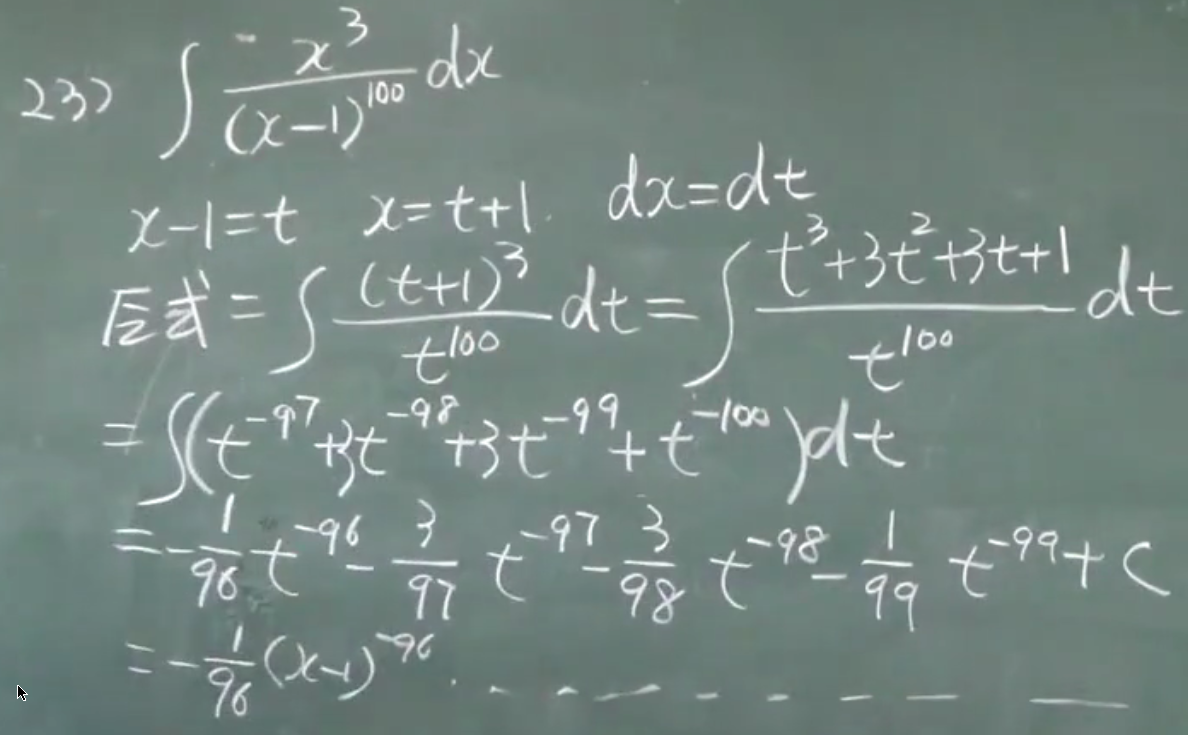 23) ∫ x³/(x-1)¹⁰⁰ dx
x-1=t x=t+1. dx=dt
原式 = ∫ (t+1)³/t¹⁰⁰ dt = ∫ (t³+3t²+3t+1)/t¹⁰⁰ dt
= ∫(t⁻⁹⁷+3t⁻⁹⁸+3t⁻⁹⁹+t⁻¹⁰⁰)dt
= -1/96 t⁻⁹⁶ - 3/97 t⁻⁹⁷ - 3/98 t⁻⁹⁸ - 1/99 t⁻⁹⁹ + C
= -1/96 (x-1)⁻⁹⁶ - - - - - - - - -